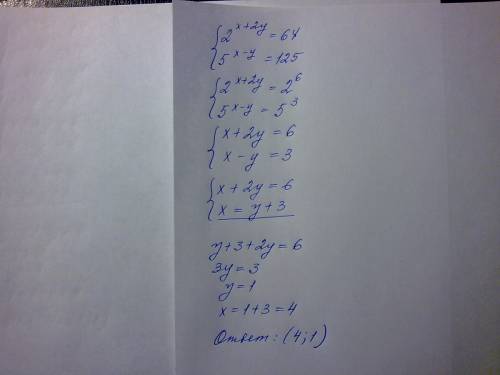 { 2^{x+2y} = 64
5^{x-y} = 125
{ 2^{x+2y} = 2^6
5^{x-y} = 5^3
{ x + 2y = 6
x - y = 3
{ x + 2y = 6
x = y + 3
y + 3 + 2y = 6
3y = 3
y = 1
x = 1 + 3 = 4
Ответ: (4; 1)